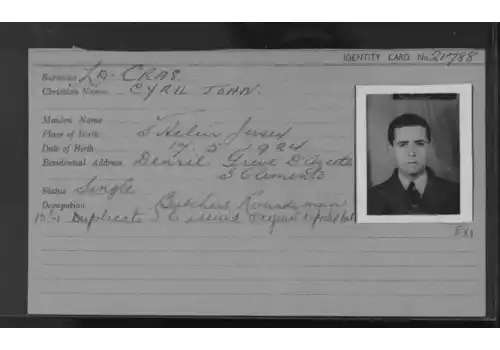 IDENTITY CARD No. 21788
Surname Le Cras.
Christian Names. CYRIL JOHN.
Maiden Name
Place of Birth St Helier Jersey
Date of Birth 17. 5. 1924
Residential Address Denril Greve D'Azette
St Clements
Status Single
Occupation Butchers Roundsman
Duplicate issued